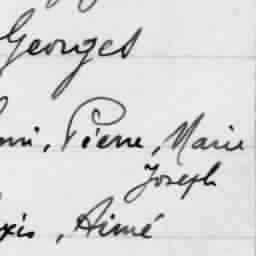 Georges
Pierre, Marie
Joseph
, Aimé